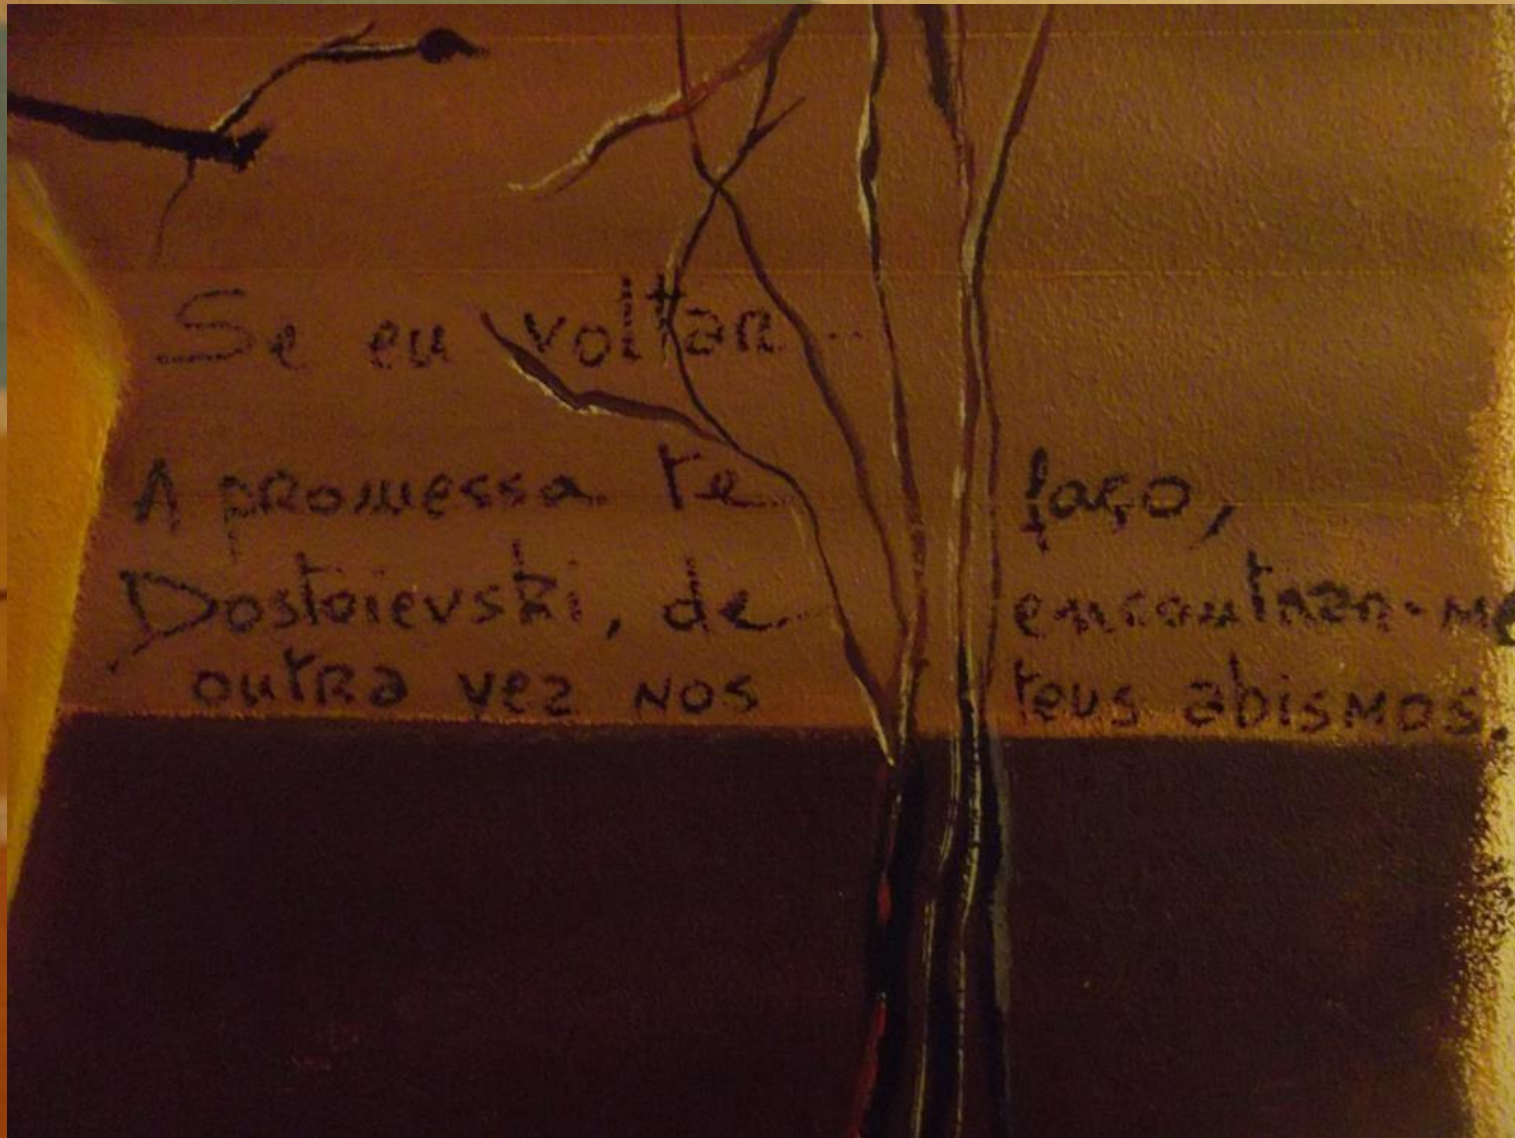 Se eu voltar...
A promessa te faço,
Dostoievski, de encontrar-me
outra vez nos teus abismos.